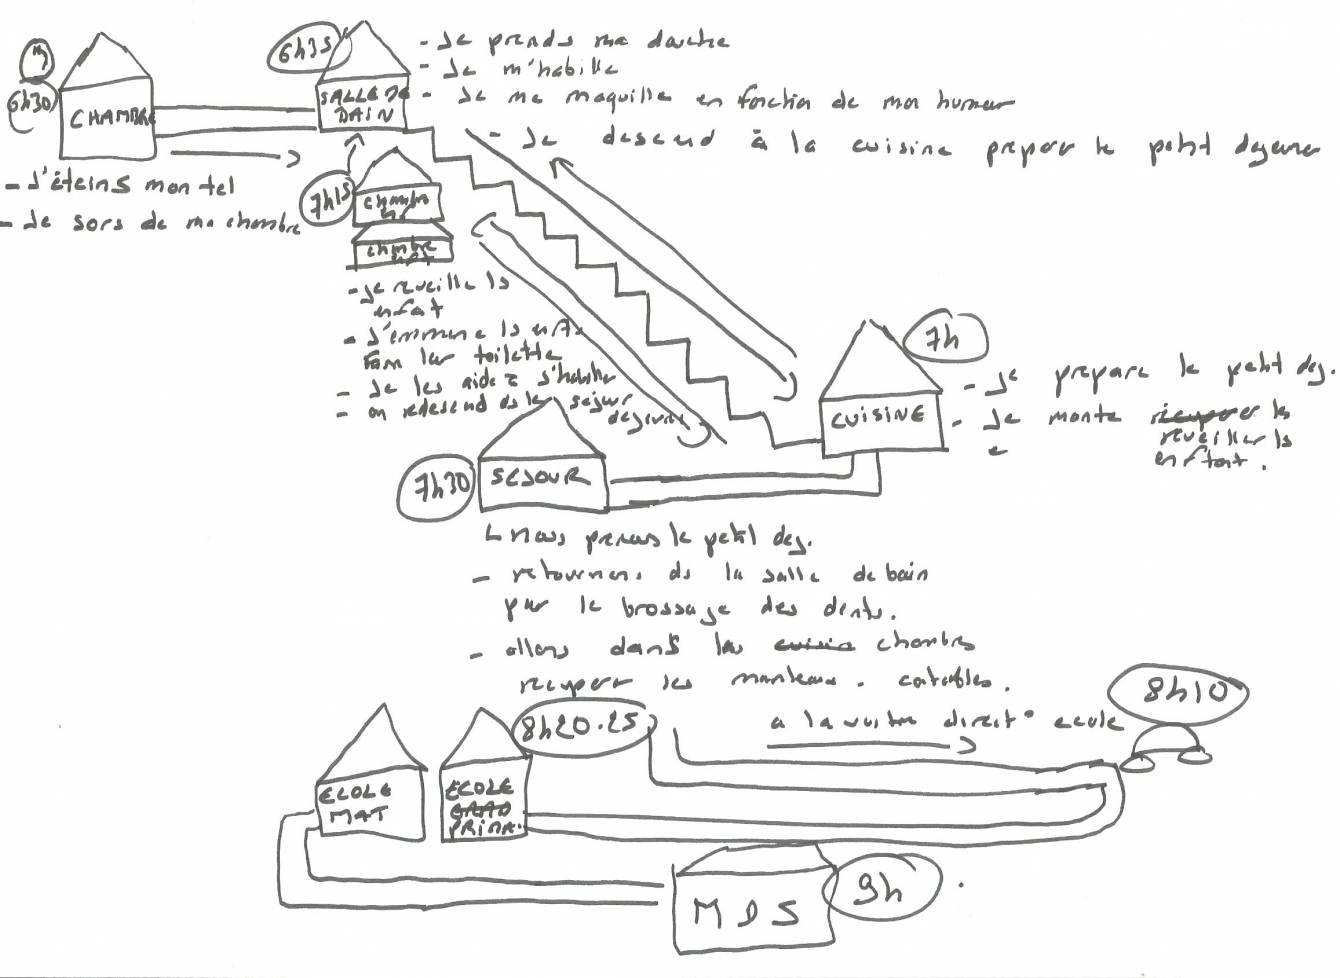 6h30
CHAMBRE
- J'éteins mon tel
- Je sors de ma chambre
6h35
SALLE DE
BAIN
- Je prends ma douche
- Je m'habille
- Je me maquille en fonction de mon humeur
- Je descend à la cuisine preparer le petit dejeuner
7h15
chambre
chambre
- Je reveille ls
enfat
- J'emmene ls
Fam leur toilette
- Je les aide à s'habiller
- on redescend ds le sejour
dejeuner
7h
CUISINE
- Je prepare le petit dej.
- Je monte recuperer ls
reveiller ls
enftant.
7h30
SEJOUR
↳ nous prenons le petit dej.
- retournons ds la salle de bain
pour le brossage des dents.
- allons dans les cuisin chambres
recuperer les manteaux. cartables.
8h10
a la voiture direct° ecole
8h20.25
ECOLE
MAT
ECOLE
GRAND
PRIMA.
MDS
9h.